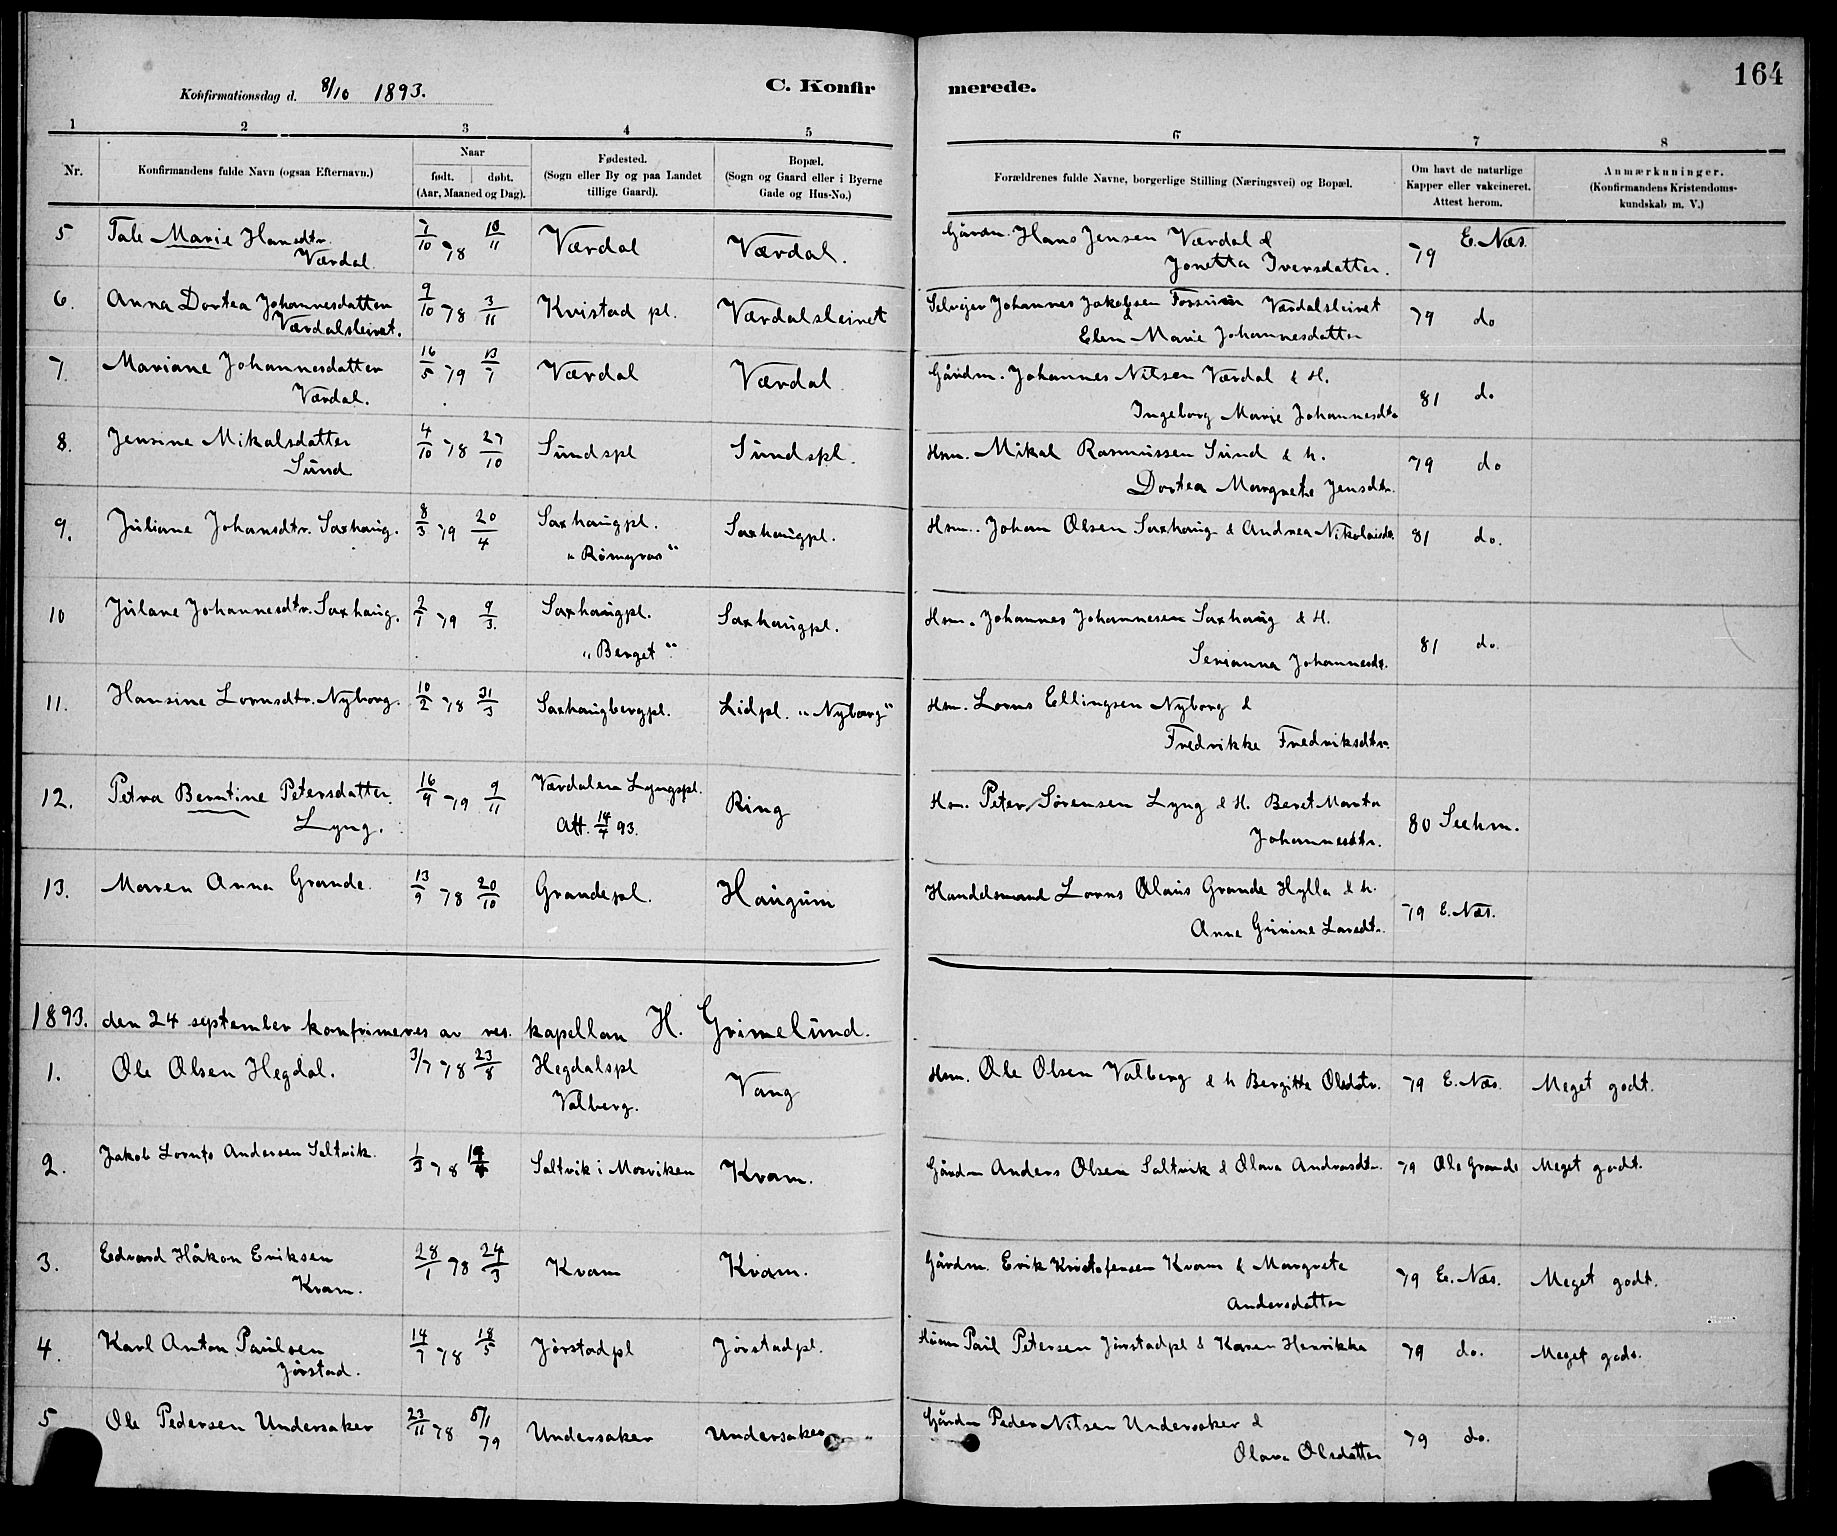 164
Konfirmationsdag d. 8/10 1893. C. Konfirmerede.
1 2 3 4 5 6 7 8
Nr. Konfirmandens fulde Navn (ogsaa Efternavn.) Naar født. døbt. (Aar, Maaned og Dag). Fødested. (Sogn eller By og paa Landet tillige Gaard). Bopæl. (Sogn og Gaard eller i Byerne Gade og Hus-No.) Forældrenes fulde Navne, borgerlige Stilling (Næringsvei) og Bopæl. Om havt de naturlige Kapper eller vakcineret. Attest herom. Anmærkninger. (Konfirmandens Kristendomskundskab m. V.)
5 Tale Marie Hansdtr. 7/10 78 10/11 Værdal Værdal. Gårdm. Hans Jensen Værdal & 79 E. Næs.
Værdal. Jonetta Iversdatter.
6. Anna Dortea Johannesdatter 9/10 78 3/11 Kvistad pl. Værdalsleiret Selvejer Johannes Jakobsen Fossum Værdalsleiret 79 do
Værdalsleiret. & Elen Marie Johannesdatter
7. Mariane Johannesdatter 16/5 79 13/7 Værdal Værdal. Gårdm. Johannes Nilsen Værdal & H. 81 do
Værdal. Ingeborg Marie Johannesdtr
8. Jensine Mikalsdatter 4/10 78 27/10 Sundspl Sundspl. Hsm. Mikal Rasmussen Sund & h. 79 do
Sund Dortea Margrete Jensdtr.
9. Juliane Johansdtr. Saxhaug. 8/3 79 20/4 Saxhaugpl. Saxhaugpl. Hsm. Johan Olsen Saxhaug & Andrea Nikolaisdr. 81 do.
10 Julane Johannesdtr. Saxhaug. 2/1 79 9/3. Saxhaugpl. Saxhaugpl. Hsm. Johannes Johannesen Saxhaug & H. 81 do.
„Berget“ Serianna Johannesdr.
11. Hansine Lornsdtr. Nyborg. 10/2 78 31/3 Saxhaugbergpl. Lidpl. „Nyborg“ Hsm. Lorns Ellingsen Nyborg &
Fredrikke Fredriksdtr.
12. Petra Berntine Petersdatter 16/9 79 9/11 Værdalen Lyngspl. Ring Hsm. Peter Sørensen Lyng & H. Beret Marta 80 Seehm.
Lyng. Att. 14/4 93. Johannesdtr.
13. Maren Anna Grande. 13/9 78 20/10 Grandepl. Haugum Handelsmand Lorns Olaus Grande Hylla & h. 79 E. Næs.
Anne Gurine Larsdtr.
1893. den 24 september konfrimeres av res. kapellan H. Grimelund.
1. Ole Olsen Hegdal. 3/7 78 23/8 Hegdalspl Vang Hsm. Ole Olsen Valberg & h Bergitta Olsdtr. 79 E. Næs. Meget godt.
Valberg.
2. Jakob Lornts Andersen Saltvik. 1/3 78 Saltvik i Mosviken Kvam. Gårdm Anders Olsen Saltvik & Olava Andreasdtr. 79 Ole Grande Meget godt.
3. Edvard Håkon Eriksen 28/1 78 24/3 Kvam Kvam. Gårdm. Erik Kristofersen Kvam & Margrete 79 E. Næs. Meget godt.
Kvam. Andersdatter
4. Karl Anton Paulsen 14/7 78 18/5 Jørstadpl Jørstadpl. Husm Paul Petersen Jørstadpl & Karen Henrikka 79 do. Meget godt.
Jørstad.
5 Ole Pedersen Undersaker 23/11 78 5/1 79 Undersaker Undersaker Gårdm Peder Nilsen Undersaker & 79 do.
Olava Olsdatter